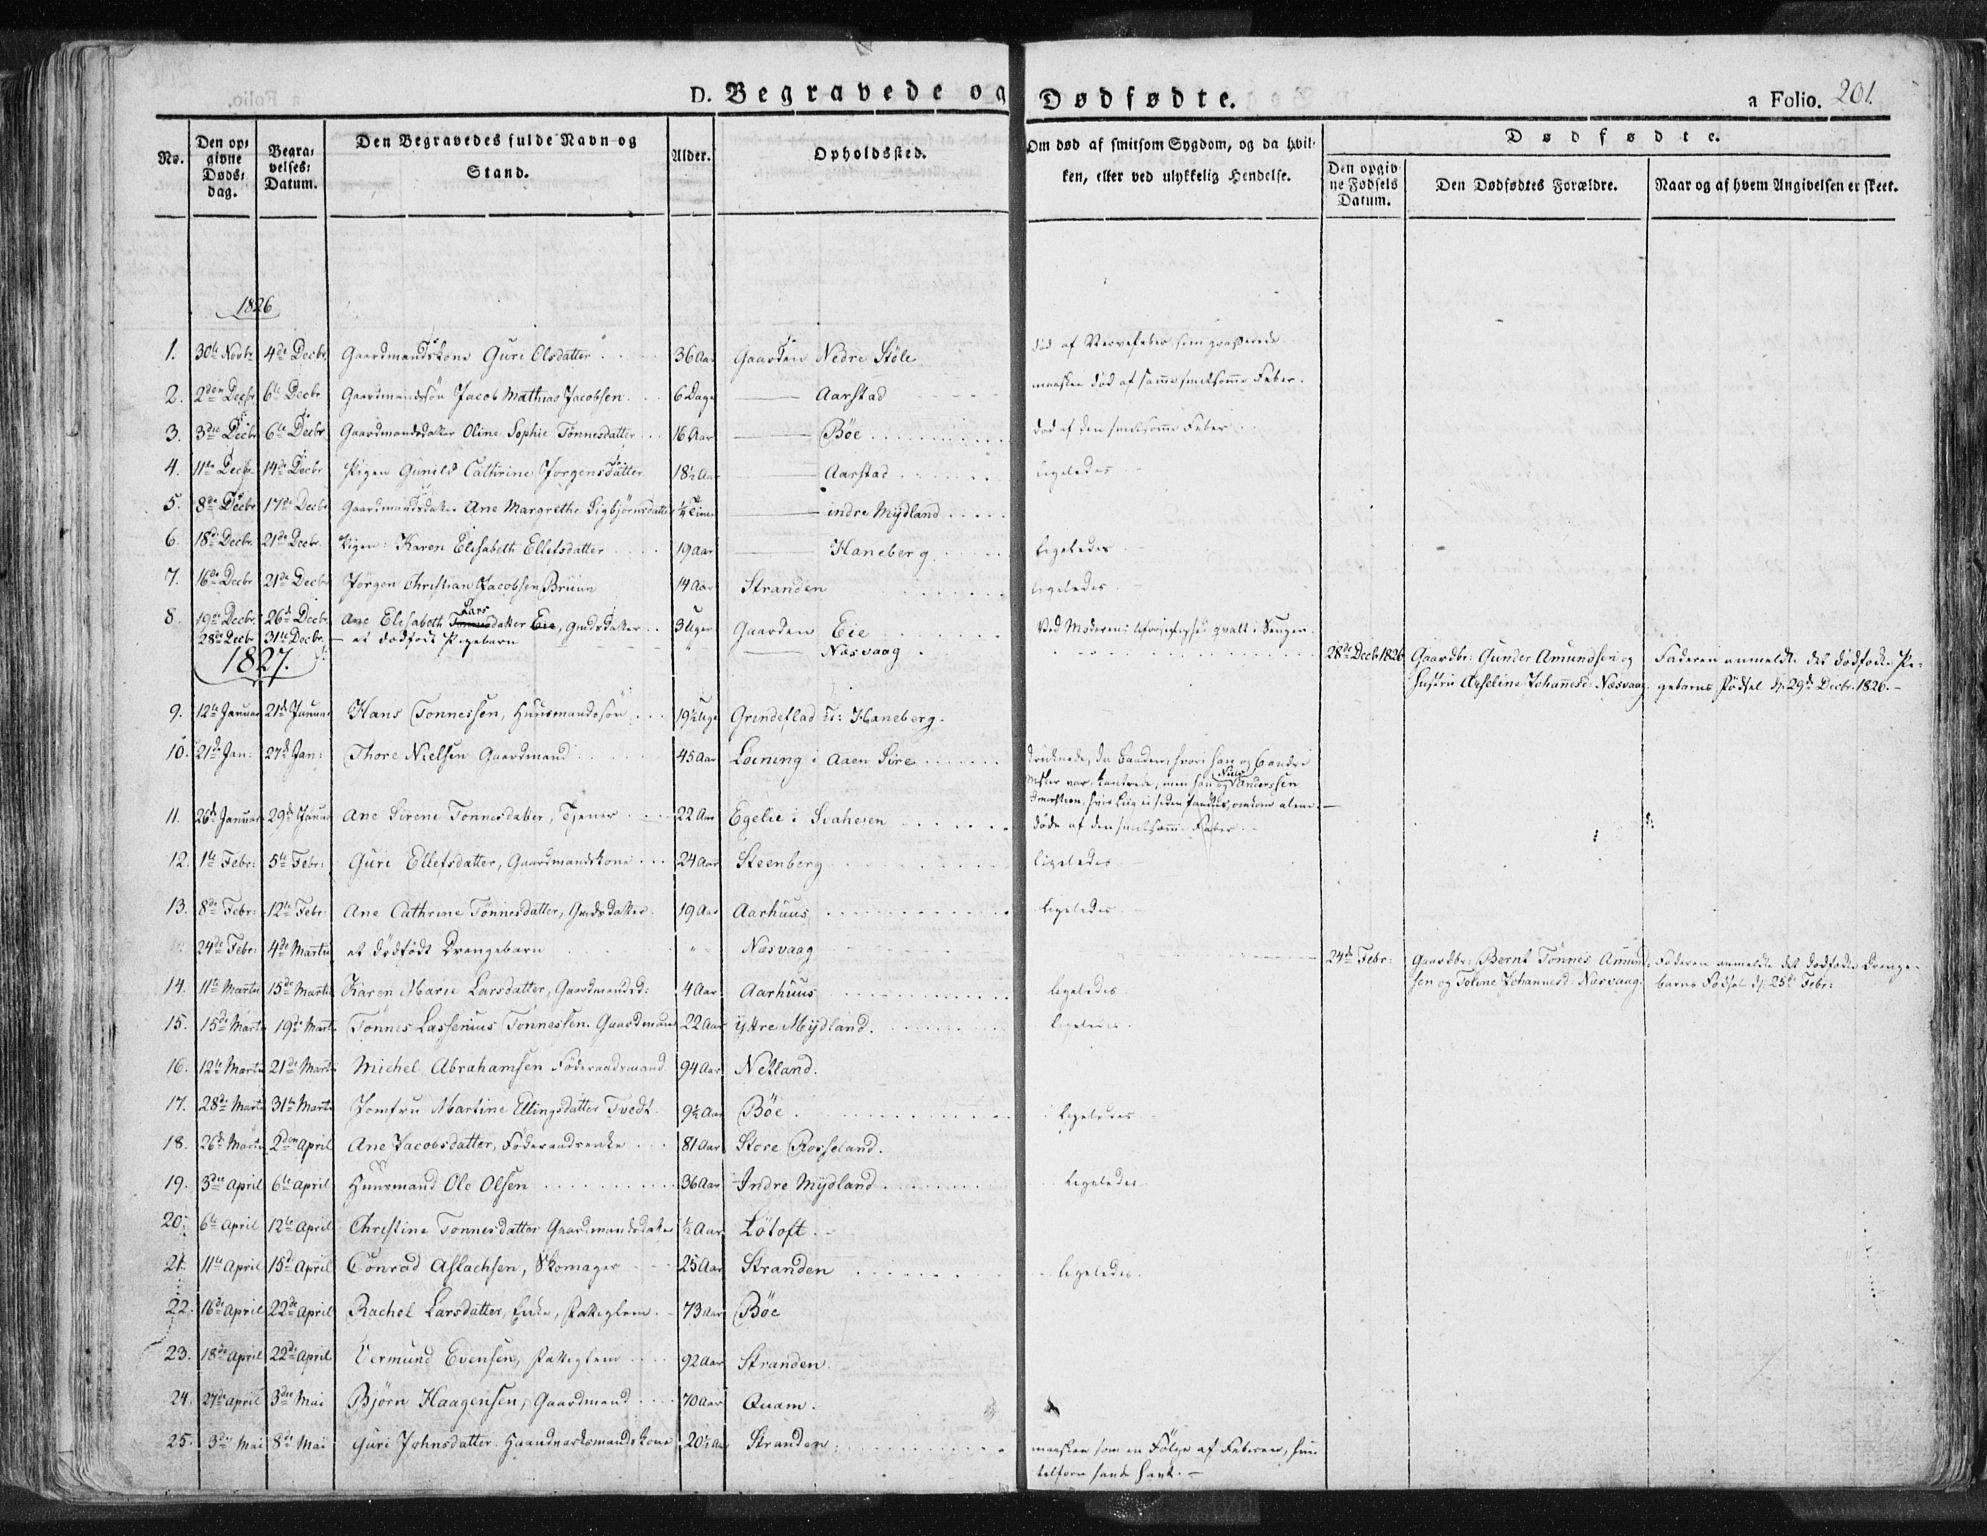 D. Begravede og Dødfødte. a Folio. 201.
No. Den opgivne Dødsdag. Begravelses-Datum. Den Begravedes fulde Navn og Stand. Alder. Opholdssted. Om død af smitsom Sygdom, og da hvilken, eller ved ulykkelig Hendelse. Dødfødte.
Den opgivne Fødsels Datum. Den Dødfødtes Forældre. Naar og af hvem Angivelsen er skeet.
1826
1. 30te Novbr 4de Decbr Gaardmandskone Guri Olsdatter 36 Aar Gaarden Nedre Stöle død af Nervefeber, som grasserede
2. 2den Decbr 6te Decbr Gaardmandssön Jacob Mathias Jacobsen 6 Dage — Aarstad maaskee død af samme smitsomme Feber.
3. 3die Decbr 6te Decbr Gaardmandsdatter Oline Sophie Tönnesdatter 16 Aar — Böe død af den smitsomme Feber
4. 11te Decbr 14de Decbr Pigen Gunild Cathrine Jorgensdatter 18½ Aar — Aarstad ligeledes
5. 8de Decbr 17de Decbr Gaardmandsdatter Ane Margrethe Sigbjörnsdatter ¼ Time — indre Mydland
6. 18de Decbr 21de Decbr Pigen: Karen Elisabeth Ellefsdatter 19 Aar — Haneberg ligeledes
7. 16de Decbr 21de Decbr Jörgen Christian Jacobsen Bruun 14 Aar Stranden ligeledes
8. 19de Decbr 26de Decbr Ane Elisabeth Lars datter Eie, Gmdsdatter 3 Uger Gaarden Eie Ved Moderens Uforsigtighed qvalt i Sengen.
28de Decbr 31te Decbr — et dødfødt Pigebarn " — Næsvaag 28de Decb 1826 Gaardbr: Gunder Amundsen og Faderen anmeldte det dødfødte Pi-
1827. Hustru Axseline Johannesd: Næsvaag. gebarns Födsel d: 29de Decbr. 1826.
9. 12te Januar 21de Januar Hans Tonnessen, Huusmandssön 19½ Uge Grindeflad u: Haneberg.
10. 21de Jan. 27de Jan: Thore Nielsen Gaardmand 45 Aar Löining i Aaen Sire druknede, da Baaden, hvori han og 6 andre
Mster var, kantrede, men han og Niels Anderssen
hvis Liig ei siden fandtes, omkom alene.
11. 26de Januar 29de Januar Ane Sirene Tonnesdatter, Tjener 22 Aar Egelie i Svahesen døde af den smitsomme Feber.
12. 1te Febr: 5te Febr: Guri Ellefsdatter, Gaardmandskone 24 Aar Steenberg ligeledes
13. 8de Febr: 12te Febr: Ane Cathrine Tönnesdatter, Gmdsdatter 19 Aar Aarhuus ligeledes
24de Febr: 4de Martii et dödfödt Drengebarn " Næsvaag 24de Febr: Gaardbr: Bernt Tönnes Amund- Faderen anmeldte det dödfödte Drenge-
sen og Toline Johannesd: Næsvaag: barns Födsel d: 25de Febr:
14. 11te Martii 15de Martii Karen Marie Larsdatter, Gaardmandsd: 4 Aar Aarhuus ligeledes
15. 15de Martii 19de Martii Tönnes Lassenius Tönnessen. Gaardmand 22 Aar ytre Mydland. ligeledes.
16. 12te Martii 21de Martii Michel Abrahamsen Föderaadsmand 94 Aar Netland.
17. 28de Martii 31te Martii Jomfru Martine Ellingsdatter Tvedt. 9½ Aar Böe. ligeledes
18. 26de Martii 2den April Ane Jacobsdatter, Föderaadsenke 81 Aar Store Rosseland.
19. 3die April 6te April Huusmand Ole Olsen 36 Aar Indre Mydland ligeledes
20. 6te April 12te April Christine Tonnesdatter Gaardmandsdatter ½ Aar Lötoft.
21. 11te April 15de April Conrad Aslachsen, Skomager 25 Aar Stranden ligeledes.
22. 16de April 22de April Rachel Larsdatter, Enke, Fattiglem 73 Aar Böe
23. 18de April 22de April Vermund Evensen, Fattiglem 92 Aar Stranden.
24. 27de April 3die Mai Björn Haagensen, Gaardmand 70 Aar Quam.
25. 3die Mai 8de Mai Guri Johnsdatter. Haandverksmandskone 20½ Aar Stranden. maaskee som en Fölge af Feberen, hun
tilforn havde havt.